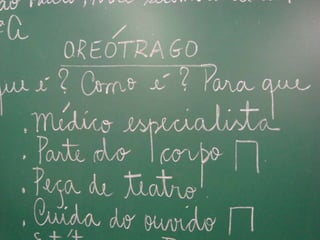 OREÓTRAGO
que é? Como é? Para que
. Médico especialista
. Parte do corpo
. Peça de teatro.
. Cuida do ouvido